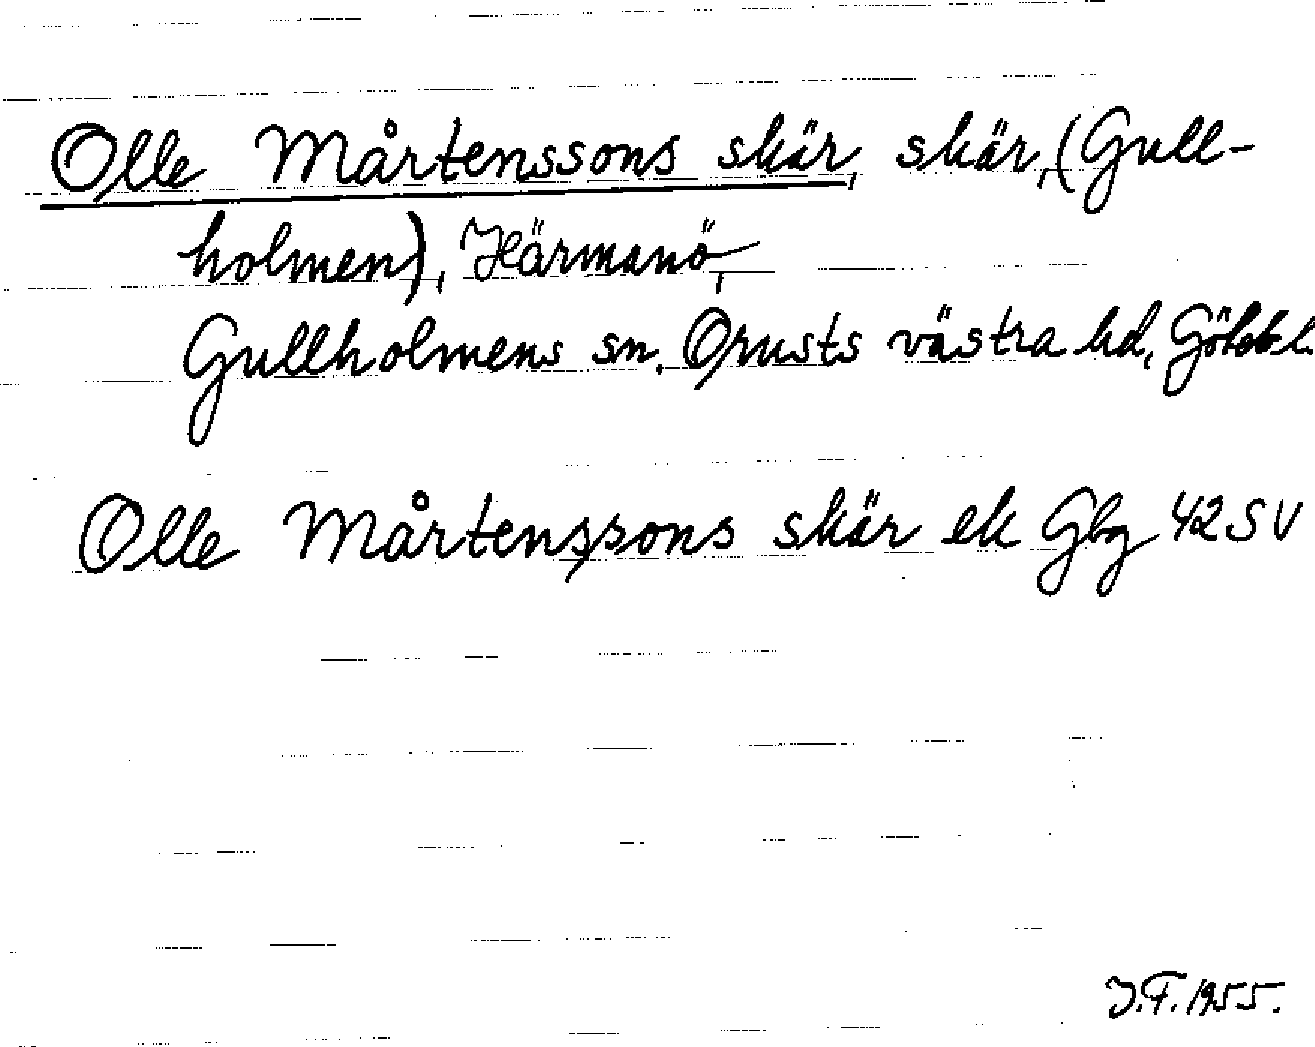 Olle Mårtenssons skär, skär, (Gull-
holmen), Härmanö,
Gullholmens sn, Orusts västra hd, Göteb.l.
Olle Mårtenssons skär ek Gbg 42 SV
J.F. 1955.